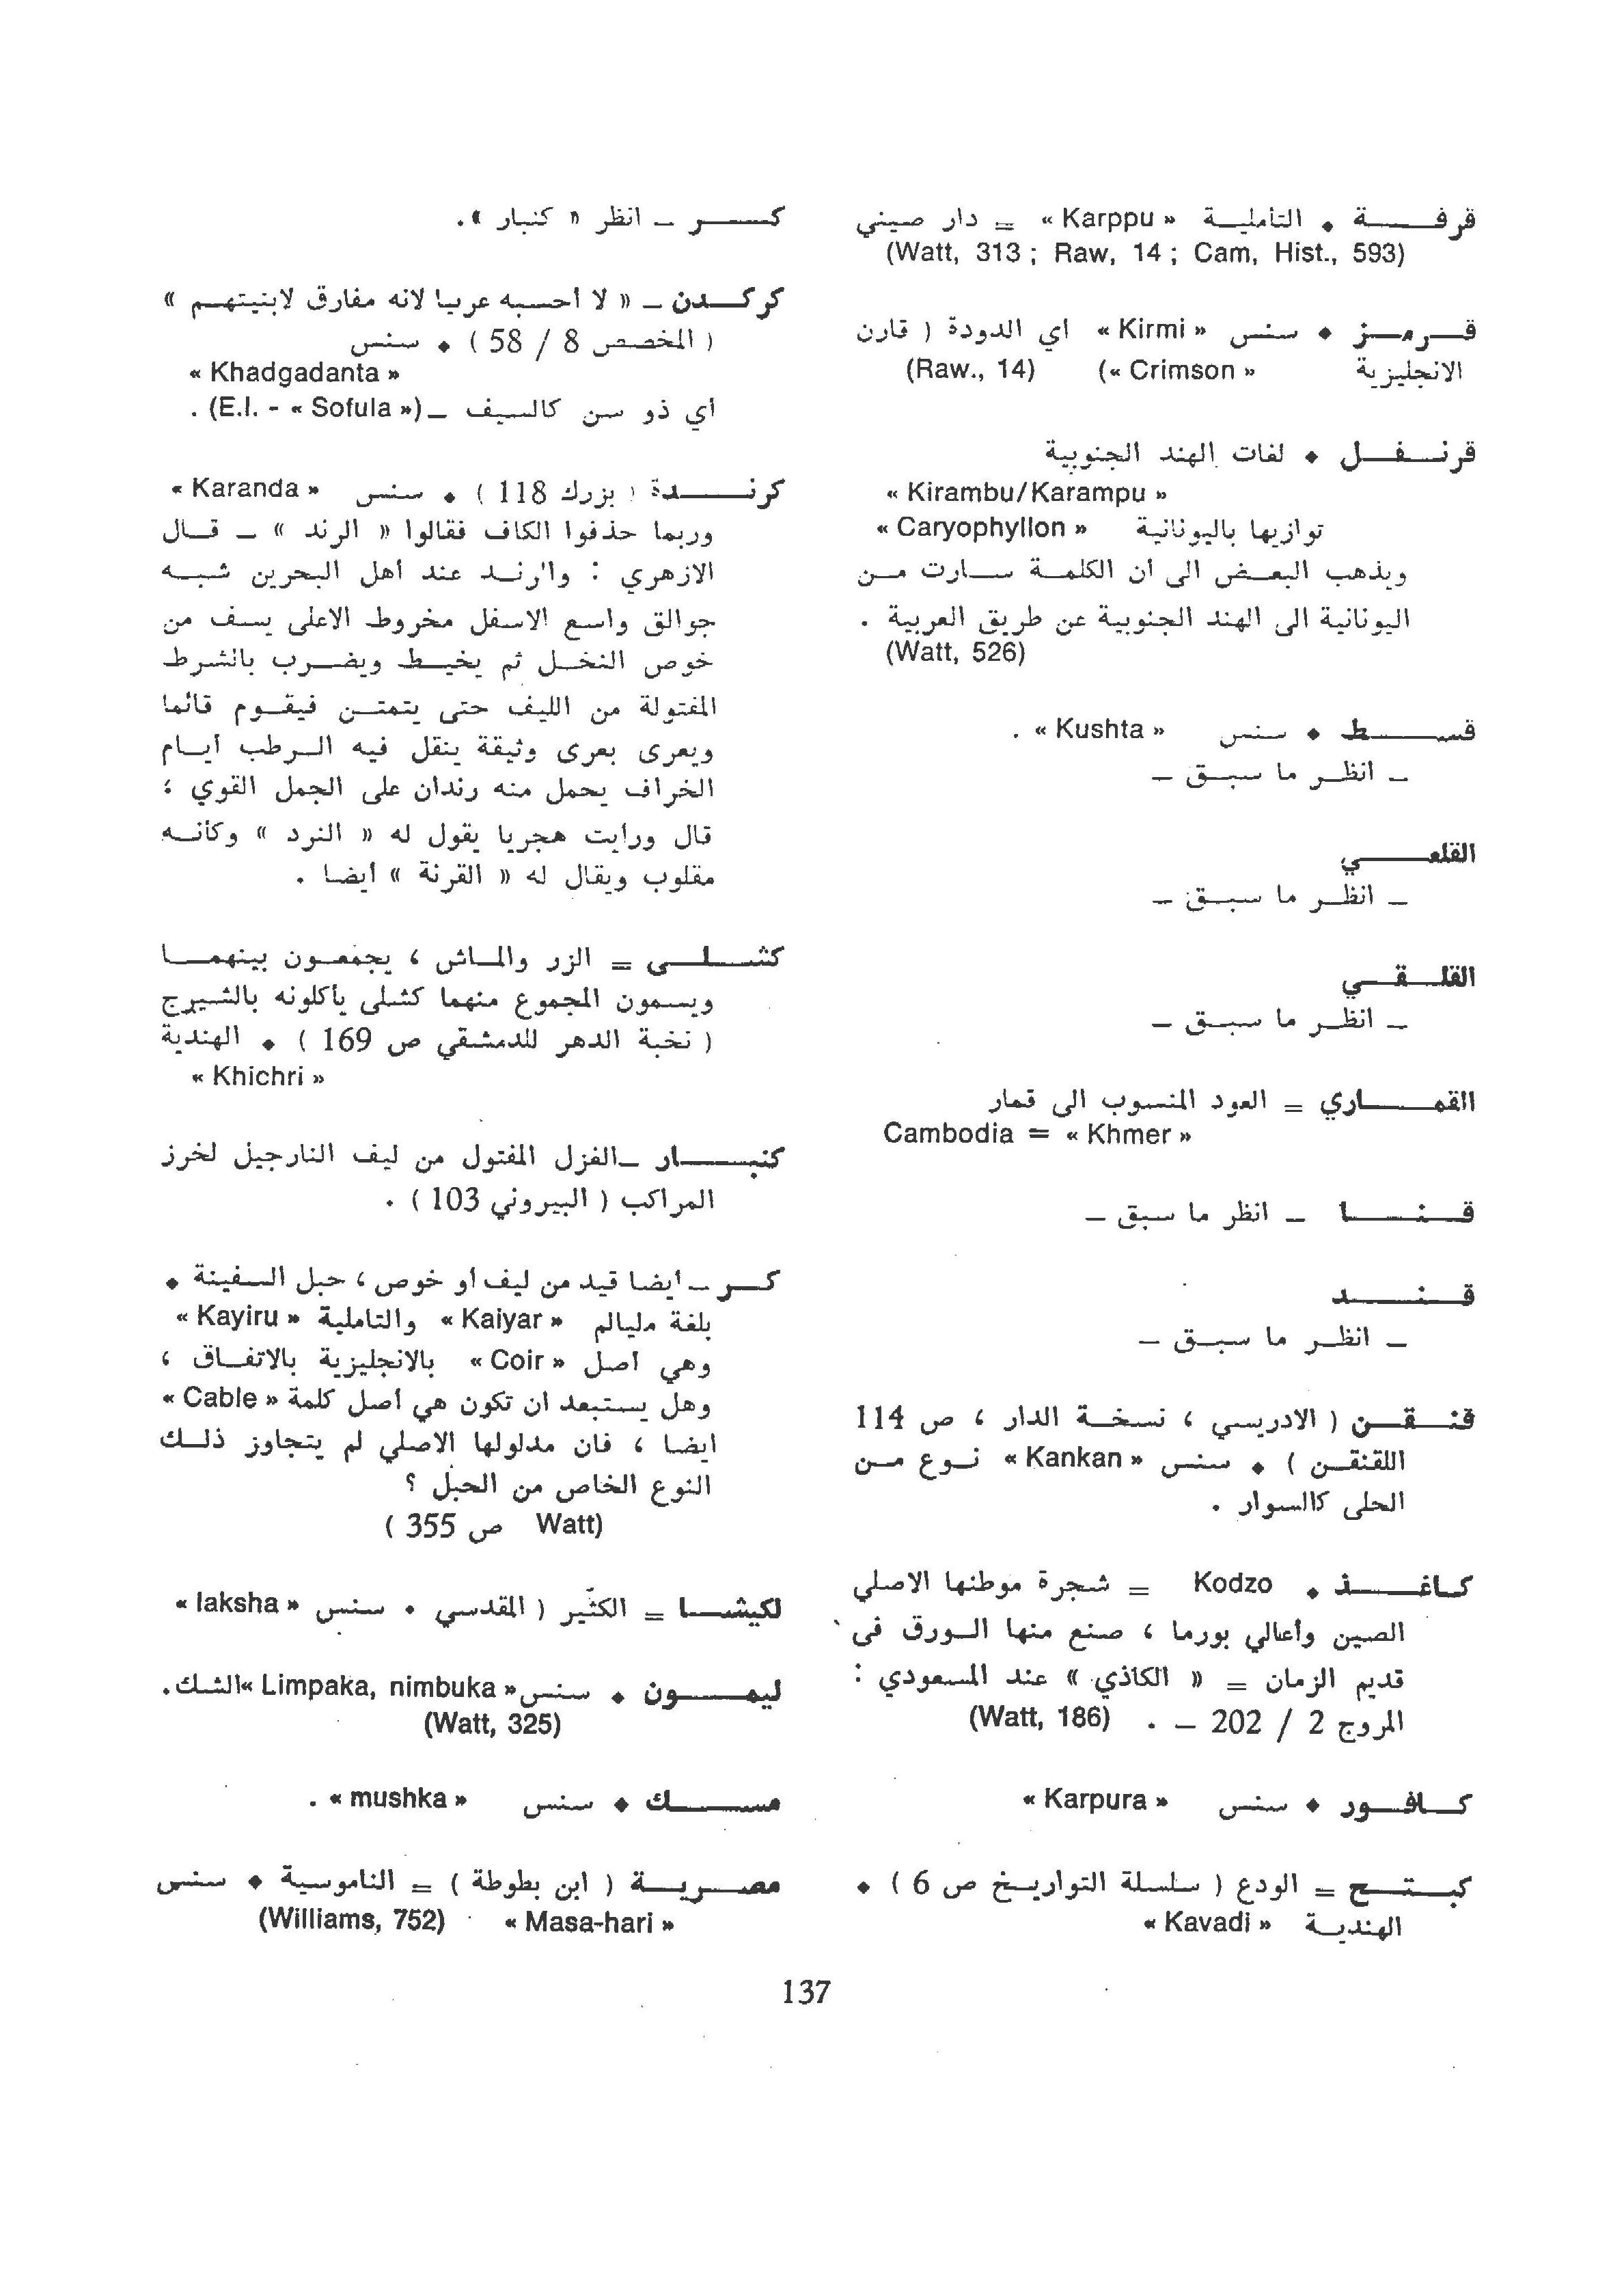 قرفة ♦ التاملية « Karppu » = دار صيني
(Watt, 313 ; Raw, 14 ; Cam, Hist., 593)
قرمز ♦ سنس « Kirmi » اي الدودة ( قارن
الانجليزية « Crimson ») (Raw., 14)
قرنفل ♦ لغات الهند الجنوبية
« Kirambu/Karampu »
توازيها باليونانية « Caryophyllon »
ويذهب البعض الى ان الكلمة سارت من
اليونانية الى الهند الجنوبية عن طريق العربية .
(Watt, 526)
قسط ♦ سنس « Kushta » .
ـ انظر ما سبق ـ
القلعي
ـ انظر ما سبق ـ
القلقي
ـ انظر ما سبق ـ
القماري = العود المنسوب الى قمار
Cambodia = « Khmer »
قنا ـ انظر ما سبق ـ
قند
ـ انظر ما سبق ـ
قنقن ( الادريسي ، نسخة الدار ، ص 114
اللقنقن ) ♦ سنس « Kankan » نوع من
الحلى كالسوار .
كاغذ ♦ Kodzo = شجرة موطنها الاصلي
الصين وأعالي بورما ، صنع منها الورق فى
قديم الزمان = « الكاذي » عند المسعودي :
المروج 2 / 202 ـ . (Watt, 186)
كافور ♦ سنس « Karpura »
كبتج = الودع ( سلسلة التواريخ ص 6 ) ♦
الهندية « Kavadi »
كر ـ انظر « كنبار ».
كركدن ـ « لا احسبه عربيا لانه مفارق لابنيتهم »
( المخصص 8 / 58 ) ♦ سنس
« Khadgadanta »
اي ذو سن كالسيف ـ(« E.I. - « Sofula) .
كرندة ( بزرك 118 ) ♦ سنس « Karanda »
وربما حذفوا الكاف فقالوا « الرند » ـ قال
الازهري : والرند عند اهل البحرين شبه
جوالق واسع الاسفل مخروط الاعلى يسف من
خوص النخل ثم يخيط ويضرب بالشرط
المفتولة من الليف حتى يتمتن فيقوم قائما
ويعرى بعرى وثيقة ينقل فيه الرطب ايام
الخراف يحمل منه رندان على الجمل القوي ؛
قال ورايت هجريا يقول له « النرد » وكانه
مقلوب ويقال له « القرنة » ايضا .
كشلى = الزر والماش ، يجمعون بينهما
ويسمون المجموع منهما كشلى يأكلونه بالشيرج
( نخبة الدهر للدمشقي ص 169 ) ♦ الهندية
« Khichri »
كنبار ـ الغزل المفتول من ليف النارجيل لخرز
المراكب ( البيروني 103 ) .
كر ـ ايضا قيد من ليف او خوص ، حبل السفينة ♦
بلغة مليالم « Kaiyar » والتاملية « Kayiru »
وهي اصل « Coir » بالانجليزية بالاتفاق ،
وهل يستبعد ان تكون هي اصل كلمة « Cable »
ايضا ، فان مدلولها الاصلي لم يتجاوز ذلك
النوع الخاص من الحبل ؟
(Watt ص 355 )
لكيشا = الكثير ( المقدسي • سنس « laksha »
ليمون ♦ سنس« Limpaka, nimbuka »الشك.
(Watt, 325)
مسك ♦ سنس « mushka » .
مصرية ( ابن بطوطة ) = الناموسية ♦ سنس
« Masa-hari » (Williams, 752)
137